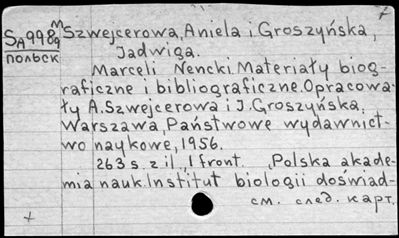 SA998м Szwejcerowa, Aniela i Groszyńska,
89
ПОЛЬСК Jadwiga.
Marceli Nencki. Materiały biog-
raficzne i bibliograficzne. Opracowa-
ły A. Szwejcerowa i J. Groszyńska,
Warszawa, Państwowe wydawnict-
wo naykowe, 1956.
263 s. z il., 1 front. (Polska akade-
mia nauk. Institut biologii doświad-
см. след. карт.